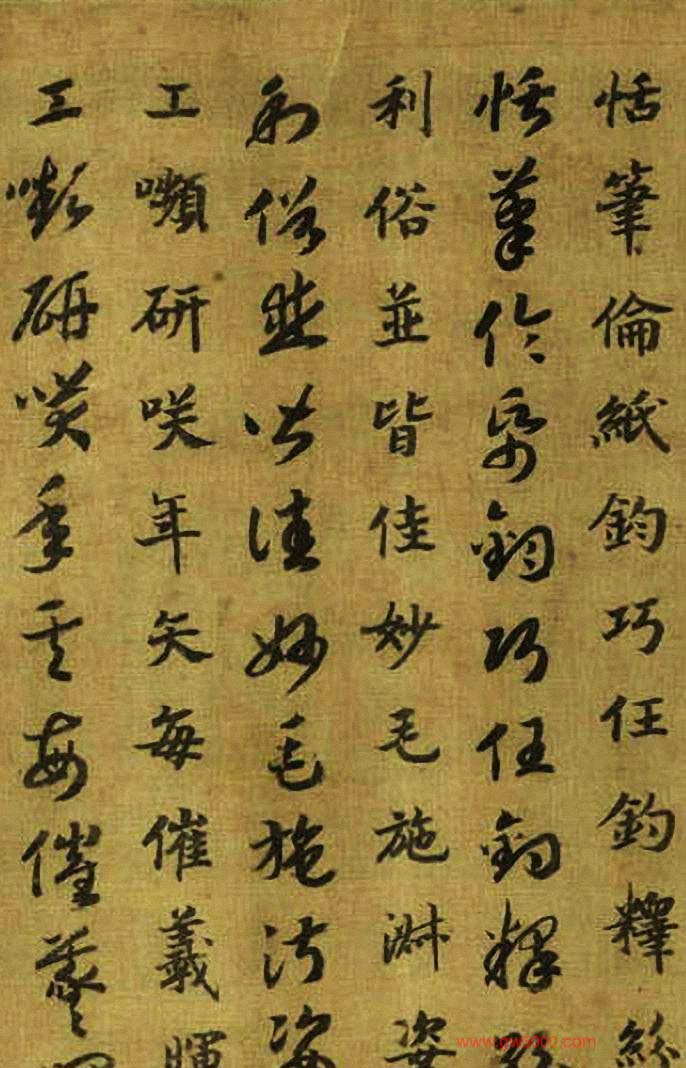 恬筆倫紙鈞巧任鈞釋紛
恬筆倫帋鈞巧任鈞釋紛
利俗並皆佳妙毛施淑姿
利俗並皆佳妙毛施淑姿
工嚬研咲年矢每催羲暉
工嚬研咲年矢每催羲暉